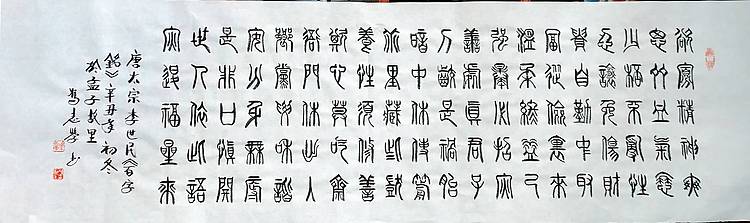 欲寡精神爽
思多血氣衰
少杯不亂性
忍讓免傷財
貴自勤中取
富從儉里來
溫柔終益己
強暴必招災
善處真君子
是禍胎
暗中休使箭
乖里藏些
養性須修善
欺心莫吃齋
衙門休出入
鄉黨要和諧
安分身無辱
是非口慎開
世人依此語
災退福星來
唐太宗李世民《百字
銘》辛丑年初冬
於孟子故里